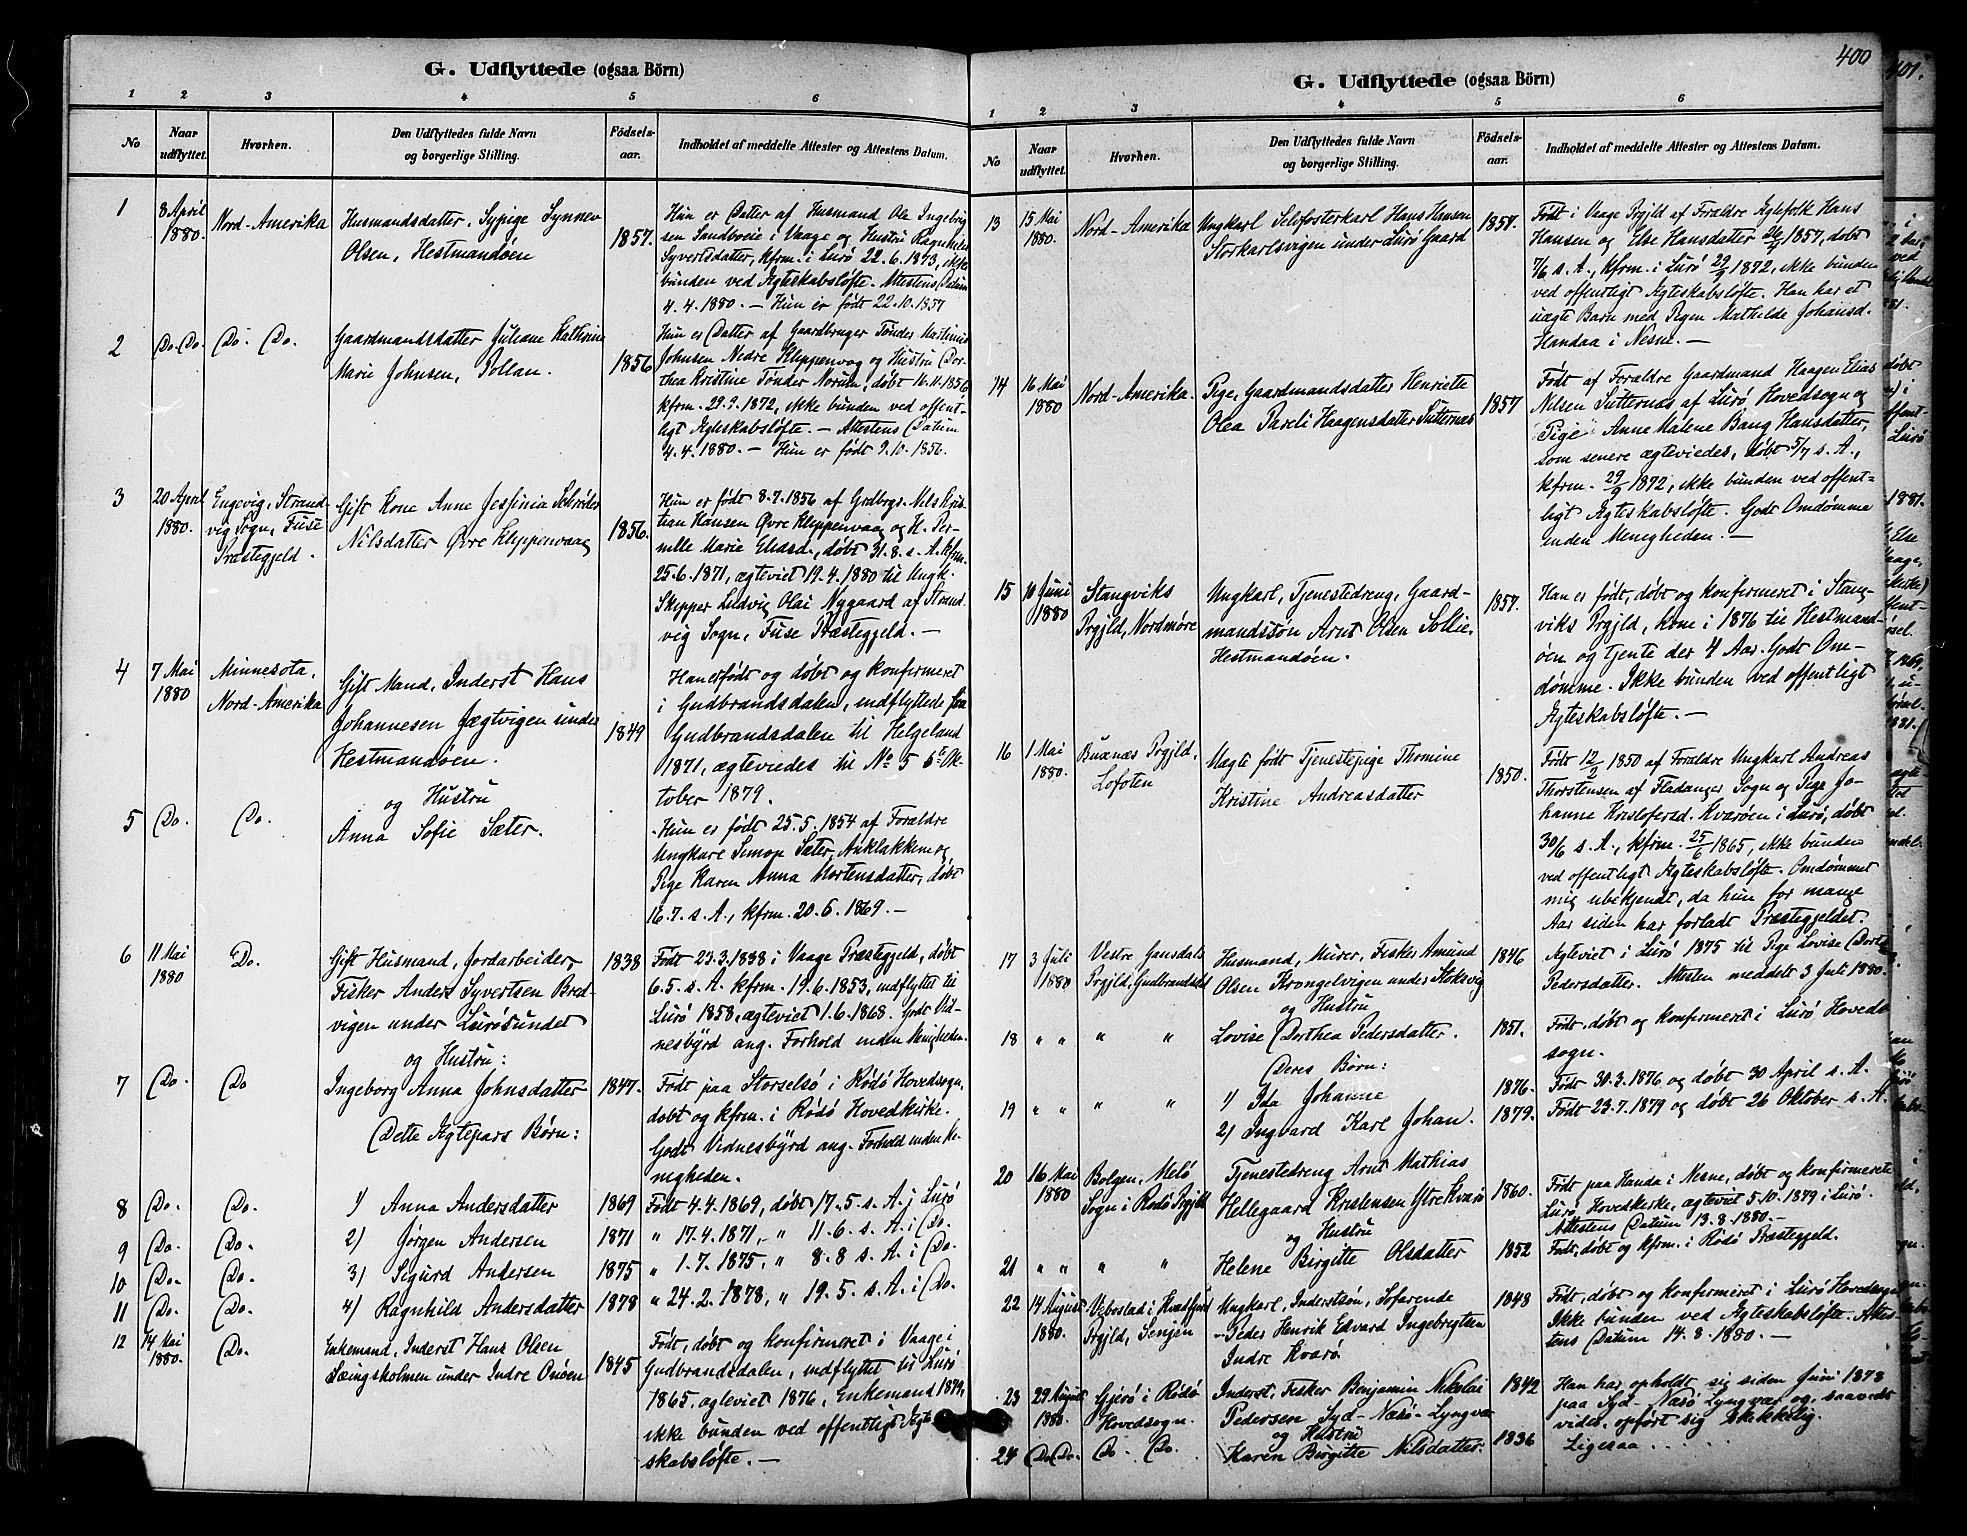 G. Udflyttede (ogsaa Börn)
1 2 3 4 5 6
No
Naar udflyttet.
Hvorhen.
Den Udflyttedes fulde Navn
og borgerlige Stilling.
Födsels-
aar.
Indholdet af meddelte Attester og Attestens Datum.
1
8 April
1880.
Nord-Amerika
Husmandsdatter, Sypige Synnev
Olsen, Hestmandøen
1857.
Hun er Datter af Husmand Ole Ingebrigt
sen Sandboeie i Vaage og Hustru Ragnhild
Syvertsdatter, kfrm. i Lurø 22.6.1873, ikke
bunden ved Ægteskabsløfte. Attestens Datum
4.4.1880. — Hun er født 22.10.1857
2
Do. Do.
Do. Do.
Gaardmandsdatter Juliane Kathrine
Marie Johnsen, Pollan.
1856
Hun er Datter af Gaardbruger Tønder Martinus
Johnsen Nedre Kleppenvaag og Hustru Dor-
thea Kristine Tønder Norum, døbt 16.11.1856
kfrm. 29.9.1872, ikke bunden ved offent-
ligt Ægteskabsløfte. — Attestens Datum
4.4.1880. — Hun er født 9.10.1856.
3
20 April
1880.
Engevig, Strand-
vig Sogn, Fuse
Præstegjeld.
Gift Kone Anne Jessinia Schrøder
Nilsdatter Øvre Kleppenvaag
1856.
Hun er født 8.7.1856 af Grdbrgr. Nils Kris-
tian Hansen Øvre Kleppenvaag og H. Per-
nille Marie Eliasd., døbt 31.8. s. A. kfrm.
25.6.1871, ægteviet 19.4.1880 til Ungk.
Skipper Ludvig Olai Nygaard af Strand-
vig Sogn, Fuse Præstegjeld. —
4
7 Mai
1880
Minnesota,
Nord-Amerika
Gift Mand, Inderst Hans
Johannesen Jægtvigen under
Hestmandøen.
og Hustru
1849
Han er født og døbt og konfirmeret
i Gudbrandsdalen, indflyttede fra
Gudbrandsdalen til Helgeland
1871, ægteviedes til No 5 6te Ok-
tober 1879.
5
Do.
Do.
Anna Sofie Sæter.
Hun er født 25.5.1854 af Forældre
Ungkarl Simon Sæter, Anklakken og
Pige Karen Anna Mortensdatter, døbt
16.7. s. A., kfrm. 20.6.1869. —
6
11 Mai
1880
Do.
Gift Husmand, Jordarbeider,
Fisker Anders Syvertsen Bred-
vigen under Lurøsundet
og Hustru:
1838
Født 23.3.1838 i Vaage Præstegjeld, døbt
6.5. s. A. kfrm. 19.6.1853, indflyttet til
Lurø 1858, ægteviet 1.6.1868. Godt Vid-
nesbyrd ang. Forhold inden Menigheden.
7
Do.
Do
Ingeborg Anna Johnsdatter
Dette Ægtepars Børn:
1847.
Født paa Storselsø i Rødø Hovedsogn,
døbt og kfrm. i Rødø Hovedkirke.
Godt Vidnesbyrd ang. Forhold inden Me-
nigheden.
8
Do.
Do.
1) Anna Andersdatter
1869
Født 4.4.1869, døbt 17.5. s. A. i Lurø
9
Do.
Do.
2) Jørgen Andersen
1871
" 17.4.1871, " 11.6. s. A. i Do.
10
Do.
Do.
3) Sigurd Andersen
1875
" 1.7.1875, " 8.8 s. A. i Do.
11
Do.
Do.
4) Ragnhild Andersdatter
1878
" 24.2.1878, " 19.5. s. A. i Do.
12
14 Mai
1880.
Do.
Enkemand, Inderst Hans Olsen
Længsholmen under Indre Onøen
1845
Født, døbt og konfirmeret i Vaage i
Gudbrandsdalen, indflyttet til Lurø
1865, ægteviet 1876, Enkemand 1879,
ikke bunden ved offentligt Ægte-
skabsløfte. —
400
G. Udflyttede (ogsaa Börn)
1 2 3 4 5 6
No
Naar udflyttet.
Hvorhen.
Den Udflyttedes fulde Navn
og borgerlige Stilling.
Födsels-
aar.
Indholdet af meddelte Attester og Attestens Datum.
13
15 Mai
1880.
Nord-Amerika
Ungkarl Selvfosterkarl Hans Hansen
Storkarlsvigen under Lurø Gaard
1857.
Født i Vaage Prgjld af Forældre Ægtefolk Hans
Hansen og Else Hansdatter 26/4 1857, døbt
7/6 s. A., kfrm. i Lurø 29/9 1872, ikke bunden
ved offentligt Ægteskabsløfte. Han har et
uægte Barn med Pigen Mathilde Johansd.
Handaa i Nesne. —
14
16 Mai
1880
Nord-Amerika.
Pige, Gaardmandsdatter Henriette
Olea Pareli Haagensdatter Sutternæs
1857
Født af Forældre Gaardmand Haagen Elias
Nilsen Sutternæs af Lurø Hovedsogn og
"Pige" Anne Malene Bang Hansdatter,
som senere ægteviedes, døbt 5/7 s. A.,
kfrm. 29/9 1872, ikke bunden ved offent-
ligt Ægteskabsløfte. Godt Omdømme
inden Menigheden. —
15
10 Juni
1880
Stangviks
Prgjld, Nordmøre
Ungkarl, Tjenestedreng, Gaard-
mandssøn Arnt Olsen Sollie,
Hestmandøen.
1857.
Han er født, døbt og konfirmeret i Stang-
viks Prgjld, kom i 1876 til Hestmand-
øen og tjente der 4 Aar. Godt Om-
dømme. Ikke bunden ved offentligt
Ægteskabsløfte. —
16
1 Mai
1880.
Buxnæs Prgjld,
Lofoten
Uægte født Tjenestepige Thomine
Kristine Andreasdatter
1850.
Født 12/2 1850 af Forældre Ungkarl Andreas
Thorstensen af Fladanger Sogn og Pige Jo-
hanne Kristofersd. Kvarøen i Lurø, døbt
30/6 s. A., kfrm. 25/6 1865, ikke bunden
ved offentligt Ægteskabsløfte. Omdømmet
mig ubekjendt, da hun for mange
Aar siden har forladt Præstegjeldet.
17
3 Juli
1880
Vestre Gausdals
Prgjld, Gudbrandsdal
Husmand, Murer, Fisker Amund
Olsen Krongelvigen under Stokvig
og Hustru
1846
Ægteviet i Lurø 1875 til Pige Lovise Dorth.
Pedersdatter. Attesten meddelt 3 Juli 1880.
18
" "
" "
Lovise Dorthea Pedersdatter.
Deres Børn:
1851.
Født, døbt og konfirmeret i Lurø Hoved-
sogn.
1) Ida Johanne
1876.
Født 30.3.1876 og døbt 30 April s. A.
19
" "
" "
2) Ingvard Karl Johan.
1879.
Født 23.7.1879 og døbt 26 Oktober s. A.
20
16 Mai
1880
Bolgen, Melø
Sogn i Rødø Prgjld
Tjenestedreng Arnt Mathias
Hellegaard Kristensen Ytre Kvarø
og Hustru
1860.
Født paa Handa i Nesne, døbt og konfirmeret i
Lurø Hovedkirke, ægteviet 5.10.1879 i Lurø.
Attestens Datum 13.8.1880. —
21
" "
" "
Helene Birgitte Olsdatter
1852
Født, døbt og kfrm. i Rødø Præstegjeld.
22
14 August
1880.
Veberlad i Kvædfjord
Prgjld, Senjen
Ungkarl, Inderstsøn, Søfarende
Peder Henrik Edvard Ingebrigtsen
Indre Kvarø.
1848
Født, døbt og konfirmeret i Lurø Hovedsogn
Ikke bunden ved Ægteskabsløfte. Attes-
tens Datum 14.8.1880. —
23
29 August
1880.
Gjerø i Rødø
Hovedsogn.
Inderst, Fisker Benjamin Nikolai
Pedersen Syd-Næsø-Lyngvær
og Hustru
1842
Han har opholdt sig siden Juni 1878
paa Syd-Næsø Lyngvær og, saavidt
vides, opført sig skikkelig.
24
Do Do.
Do. Do.
Karen Birgitte Nilsdatter.
1836
Ligesaa . . . . .
401.